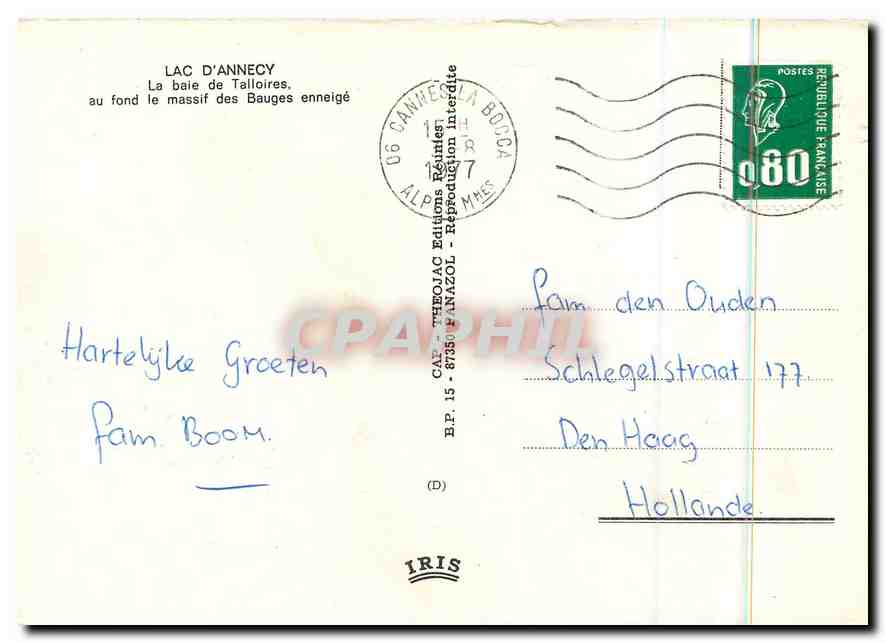 LAC D'ANNECY
La baie de Talloires,
au fond le massif des Bauges enneigé
06 CANNES LA BOCCA
8
1977
ALP. MMES
POSTES
REPUBLIQUE FRANÇAISE
0,80
CAP - THEOJAC Editions Réunies
B.P. 15 - 87350 PANAZOL - Reproduction interdite
CPAPHIL
Hartelijke Groeten
fam. BOOM.
fam den Ouden
Schlegelstraat 177
Den Haag
Hollande.
(D)
IRIS